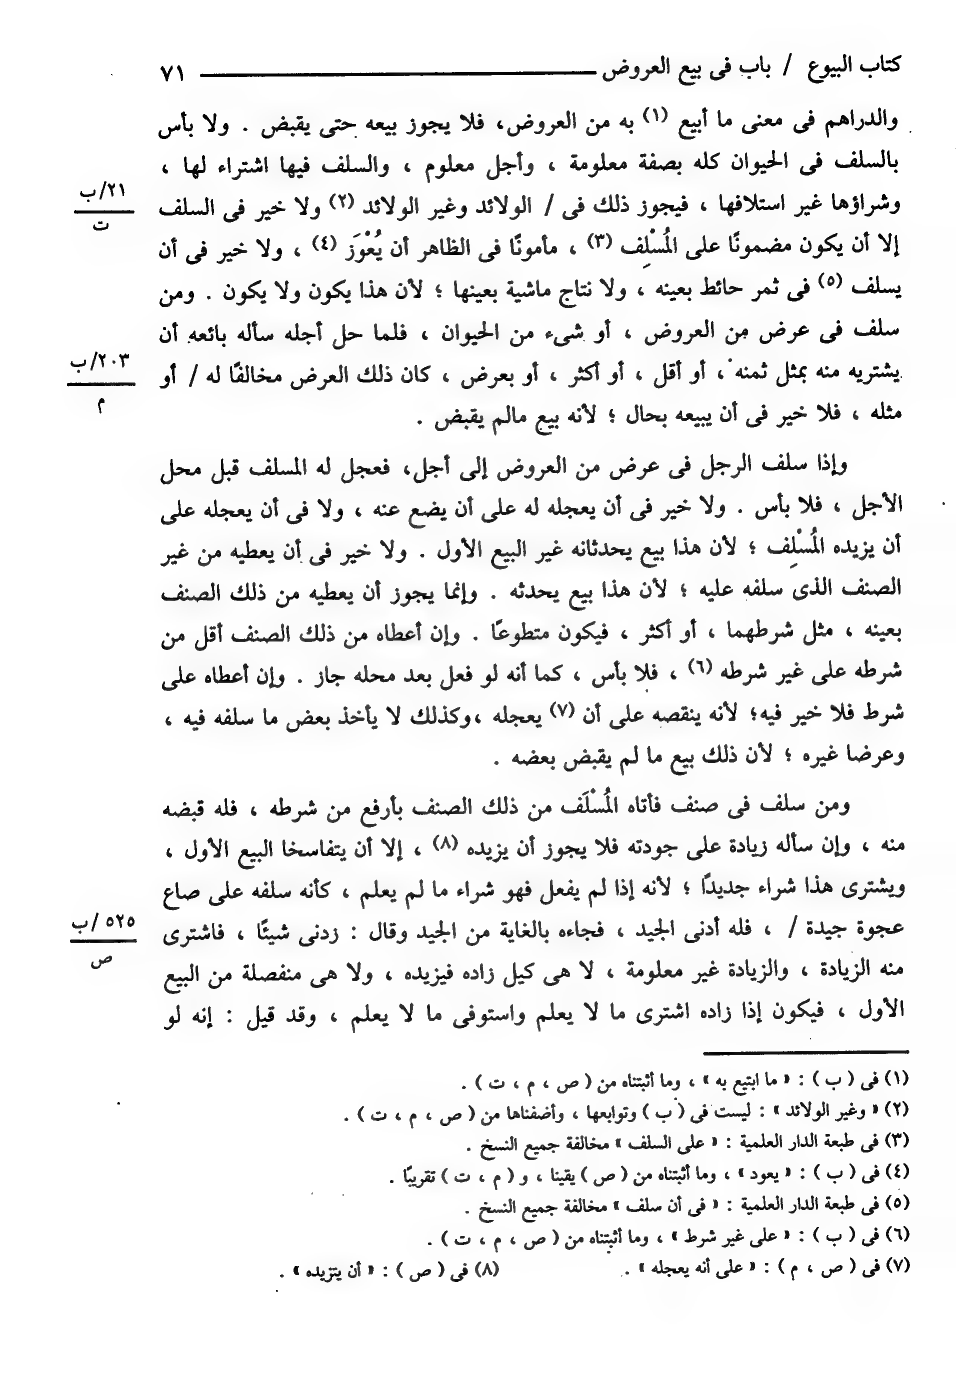 كتاب البيوع / باب فى بيع العروض ــــــــــــــــــــ ٧١
والدراهم فى معنى ما أبيع (١) به من العروض، فلا يجوز بيعه حتى يقبض . ولا بأس
بالسلف فى الحيوان كله بصفة معلومة ، وأجل معلوم ، والسلف فيها اشتراء لها ،
٢١/ب
ت
وشراؤها غير استلافها ، فيجوز ذلك فى / الولائد وغير الولائد (٢) ولا خير فى السلف
إلا أن يكون مضمونًا على المُسْلِف (٣) ، مأمونًا فى الظاهر أن يُعْوَز (٤) ، ولا خير فى أن
يسلف (٥) فى ثمر حائط بعينه ، ولا نتاج ماشية بعينها ؛ لأن هذا يكون ولا يكون . ومن
سلف فى عرض من العروض ، أو شىء من الحيوان ، فلما حل أجله سأله بائعه أن
٢٠٣/ب
م
يشتريه منه بمثل ثمنه ، أو أقل ، أو أكثر ، أو بعرض ، كان ذلك العرض مخالفًا له / أو
مثله ، فلا خير فى أن يبيعه بحال ؛ لأنه بيع مالم يقبض .
وإذا سلف الرجل فى عرض من العروض إلى أجل، فعجل له المسلف قبل محل
الأجل ، فلا بأس . ولا خير فى أن يعجله له على أن يضع عنه ، ولا فى أن يعجله على
أن يزيده المُسْلِف ؛ لأن هذا بيع يحدثانه غير البيع الأول . ولا خير فى أن يعطيه من غير
الصنف الذى سلفه عليه ؛ لأن هذا بيع يحدثه . وإنما يجوز أن يعطيه من ذلك الصنف
بعينه ، مثل شرطهما ، أو أكثر ، فيكون متطوعًا . وإن أعطاه من ذلك الصنف أقل من
شرطه على غير شرطه (٦) ، فلا بأس ، كما أنه لو فعل بعد محله جاز . وإن أعطاه على
شرط فلا خير فيه؛ لأنه ينقصه على أن (٧) يعجله ،وكذلك لا يأخذ بعض ما سلفه فيه ،
وعرضا غيره ؛ لأن ذلك بيع ما لم يقبض بعضه .
ومن سلف فى صنف فأتاه المُسْلَف من ذلك الصنف بأرفع من شرطه ، فله قبضه
منه ، وإن سأله زيادة على جودته فلا يجوز أن يزيده (٨) ، إلا أن يتفاسخا البيع الأول ،
ويشترى هذا شراء جديدًا ؛ لأنه إذا لم يفعل فهو شراء ما لم يعلم ، كأنه سلفه على صاع
٥٢٥/ب
ص
عجوة جيدة / ، فله أدنى الجيد ، فجاءه بالغاية من الجيد وقال : زدنى شيئًا ، فاشترى
منه الزيادة ، والزيادة غير معلومة ، لا هى كيل زاده فيزيده ، ولا هى منفصلة من البيع
الأول ، فيكون إذا زاده اشترى ما لا يعلم واستوفى ما لا يعلم ، وقد قيل : إنه لو
(١) فى ( ب ) : « ما ابتيع به » ، وما أثبتناه من ( ص ، م ، ت ) .
(٢) « وغير الولائد » : ليست فى ( ب ) وتوابعها ، وأضفناها من ( ص ، م ، ت ) .
(٣) فى طبعة الدار العلمية : « على السلف » مخالفة جميع النسخ .
(٤) فى ( ب ) : « يعود » ، وما أثبتناه من ( ص ) يقينا ، و ( م ، ت ) تقريبًا .
(٥) فى طبعة الدار العلمية : « فى أن سلف » مخالفة جميع النسخ .
(٦) فى ( ب ) : « على غير شرط » ، وما أثبتناه من ( ص ، م ، ت ) .
(٧) فى ( ص ، م ) : « على أنه يعجله » . (٨) فى ( ص ) : « أن يتزيده » .